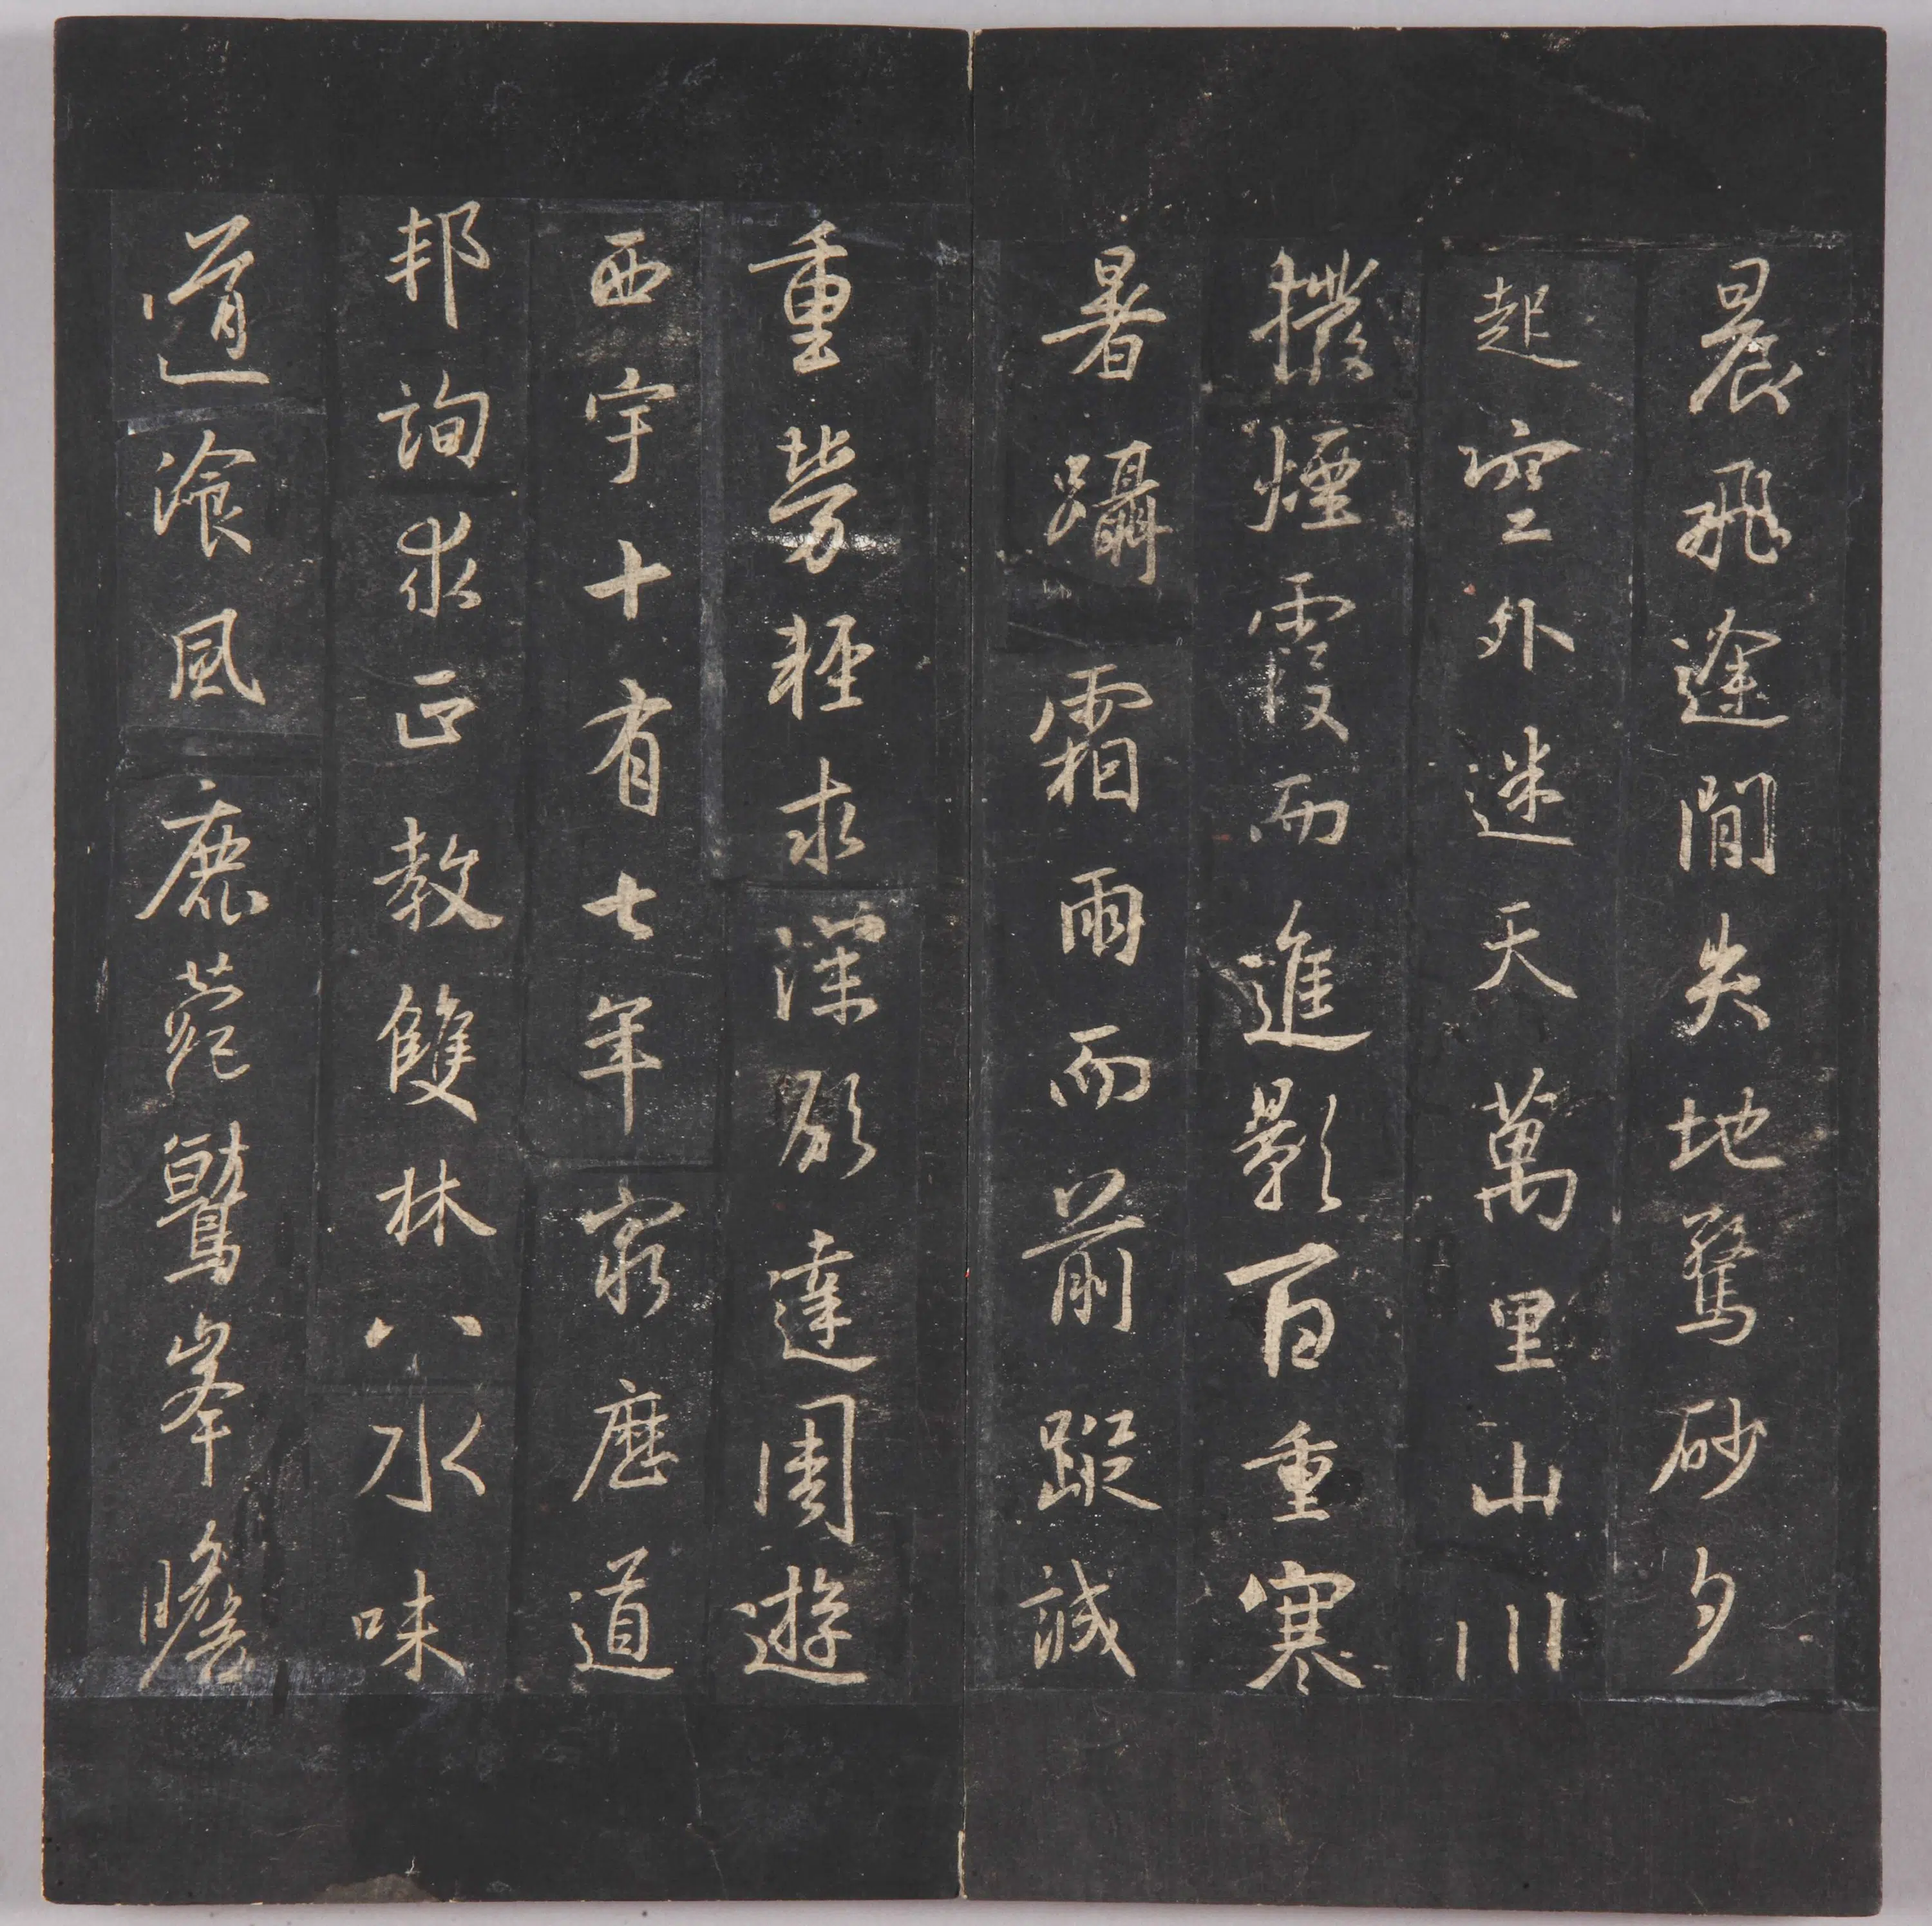 晨飛途閒失地驚砂夕
起空外迷天萬里山川
撥煙霞而進影百重寒
暑躡霜雨而前蹤誠
重勞輕求深願達周遊
西宇十有七年窮歷道
邦詢求正教雙林八水味
道飡風鹿菀鷲峯瞻